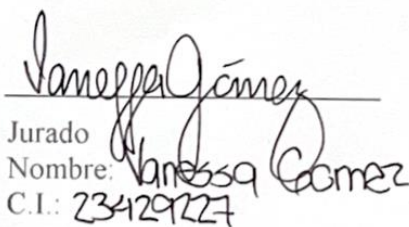 Vanessa Gómez
Jurado
Nombre: Vanessa Gomez
C.I.: 23429227